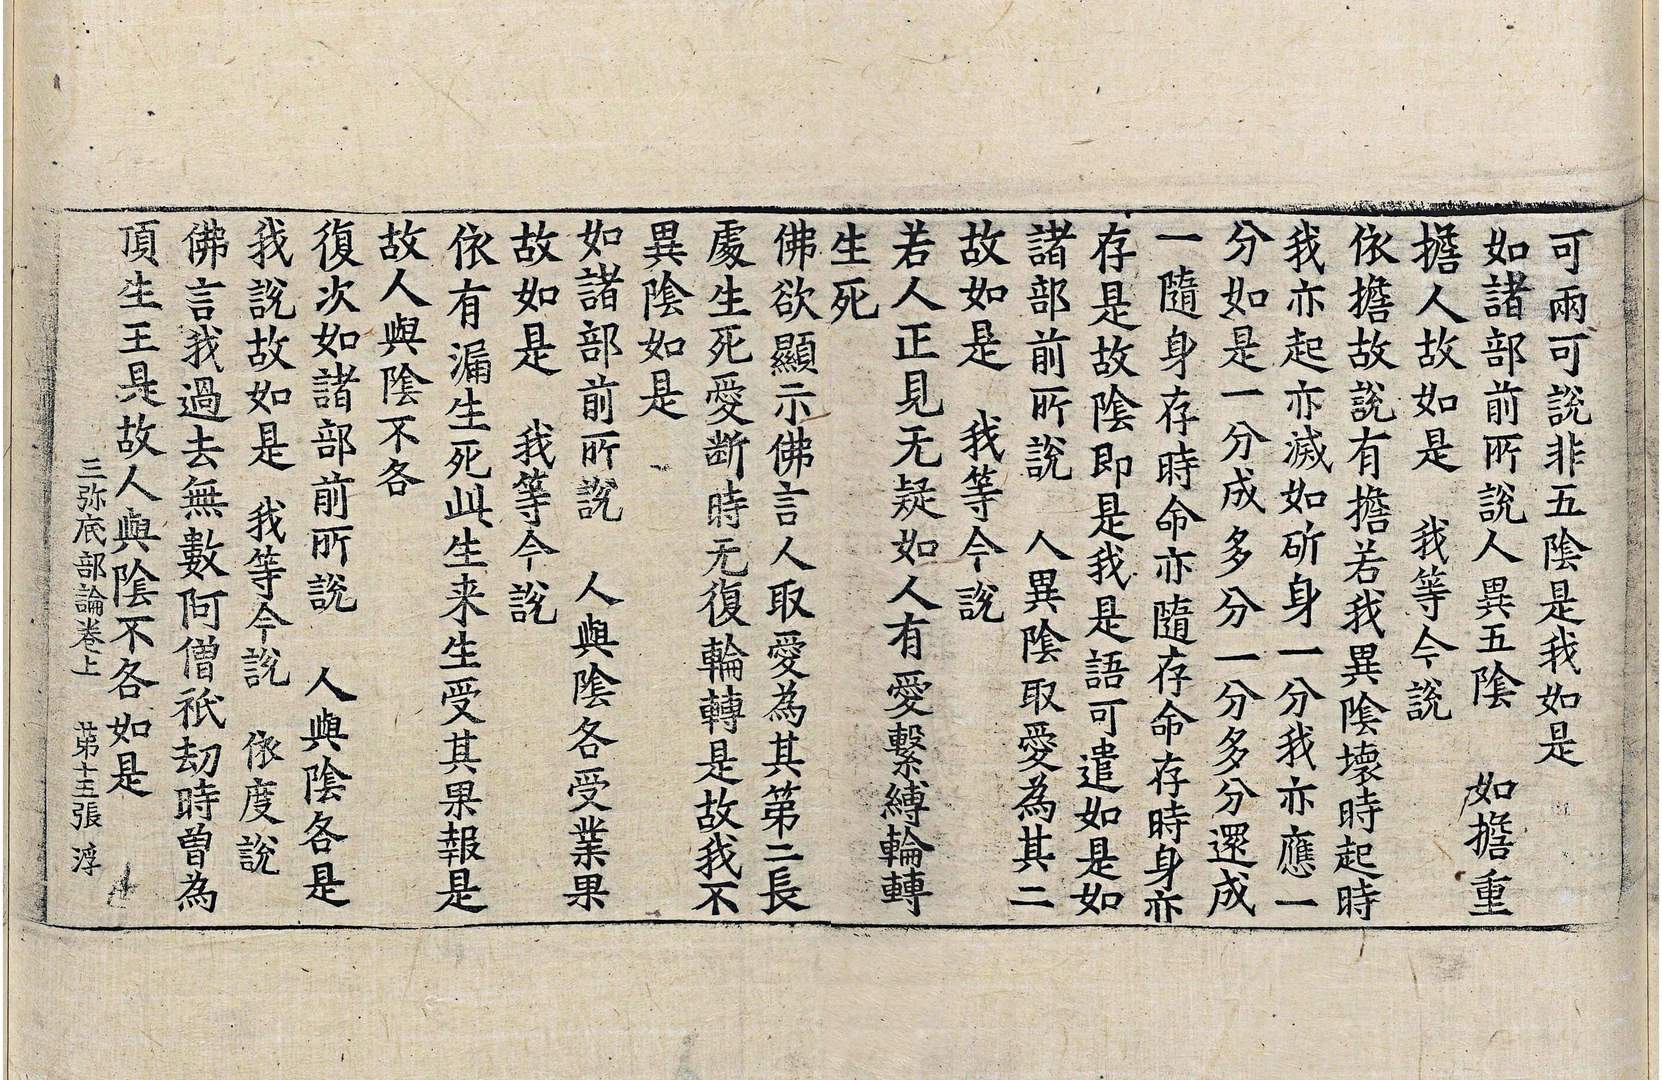 可兩可說非五陰是我如是
如諸部前所說人異五陰　如擔重
擔人故如是　我等今說
依擔故說有擔若我異陰壞時起時
我亦起亦滅如斫身一分我亦應一
分如是一分成多分一分多分還成
一隨身存時命亦隨存命存時身亦
存是故陰即是我是語可遣如是如
諸部前所說　人異陰取愛為其二
故如是　我等今說
若人正見无疑如人有愛繫縛輪轉
生死
佛欲顯示佛言人取愛為其第二長
處生死愛斷時无復輪轉是故我不
異陰如是
如諸部前所說　人與陰各受業果
故如是　我等今說
依有漏生死此生来生受其果報是
故人與陰不各
復次如諸部前所說　人與陰各是
我說故如是　我等今說　依度說
佛言我過去無數阿僧祇劫時曾為
頂生王是故人與陰不各如是
三弥底部論卷上　第十五張　浮